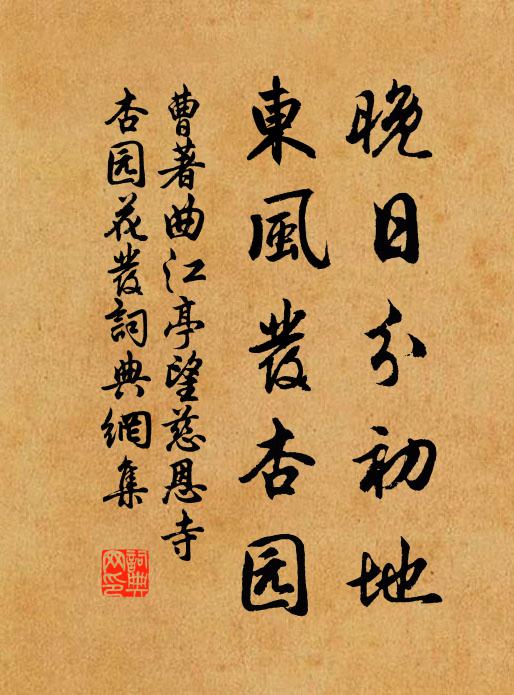 晚日分初地
東風發杏园
曹著曲江亭望慈恩寺
杏园花發詞典網集
詞典网印